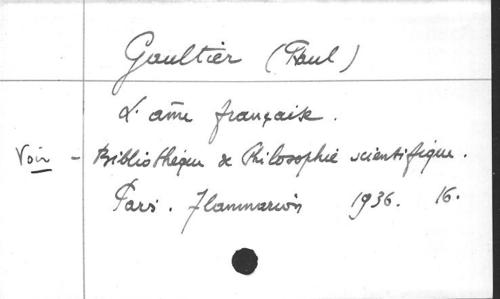 Gaultier (Paul)
L'âme française.
Voir - Bibliothèque de Philosophie scientifique.
Paris. Flammarion 1936. 16.